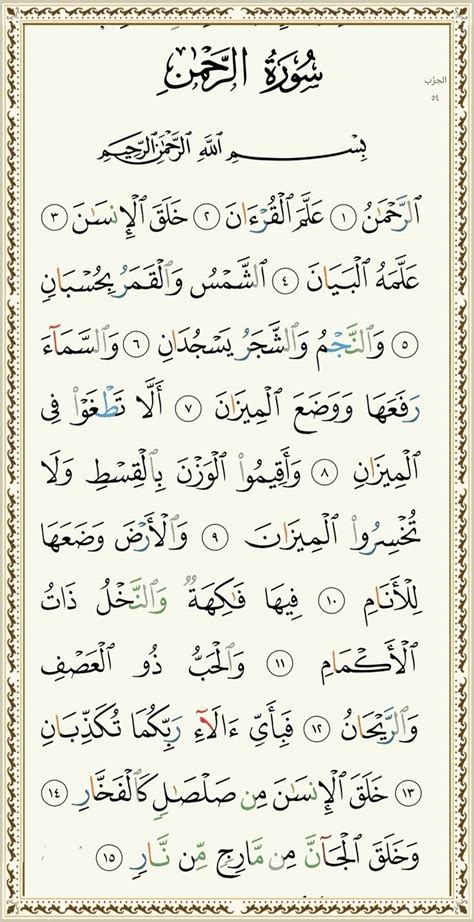 سُورَةُ الرَّحْمَٰن
الحزب
٥٤
بِسْمِ ٱللَّهِ ٱلرَّحْمَٰنِ ٱلرَّحِيمِ
ٱلرَّحْمَٰنُ ١ عَلَّمَ ٱلْقُرْءَانَ ٢ خَلَقَ ٱلْإِنسَٰنَ ٣
عَلَّمَهُ ٱلْبَيَانَ ٤ ٱلشَّمْسُ وَٱلْقَمَرُ بِحُسْبَانٍ
٥ وَٱلنَّجْمُ وَٱلشَّجَرُ يَسْجُدَانِ ٦ وَٱلسَّمَآءَ
رَفَعَهَا وَوَضَعَ ٱلْمِيزَانَ ٧ أَلَّا تَطْغَوْا۟ فِى
ٱلْمِيزَانِ ٨ وَأَقِيمُوا۟ ٱلْوَزْنَ بِٱلْقِسْطِ وَلَا
تُخْسِرُوا۟ ٱلْمِيزَانَ ٩ وَٱلْأَرْضَ وَضَعَهَا
لِلْأَنَامِ ١٠ فِيهَا فَٰكِهَةٌ وَٱلنَّخْلُ ذَاتُ
ٱلْأَكْمَامِ ١١ وَٱلْحَبُّ ذُو ٱلْعَصْفِ
وَٱلرَّيْحَانُ ١٢ فَبِأَىِّ ءَالَآءِ رَبِّكُمَا تُكَذِّبَانِ
١٣ خَلَقَ ٱلْإِنسَٰنَ مِن صَلْصَٰلٍ كَٱلْفَخَّارِ ١٤
وَخَلَقَ ٱلْجَآنَّ مِن مَّارِجٍ مِّن نَّارٍ ١٥